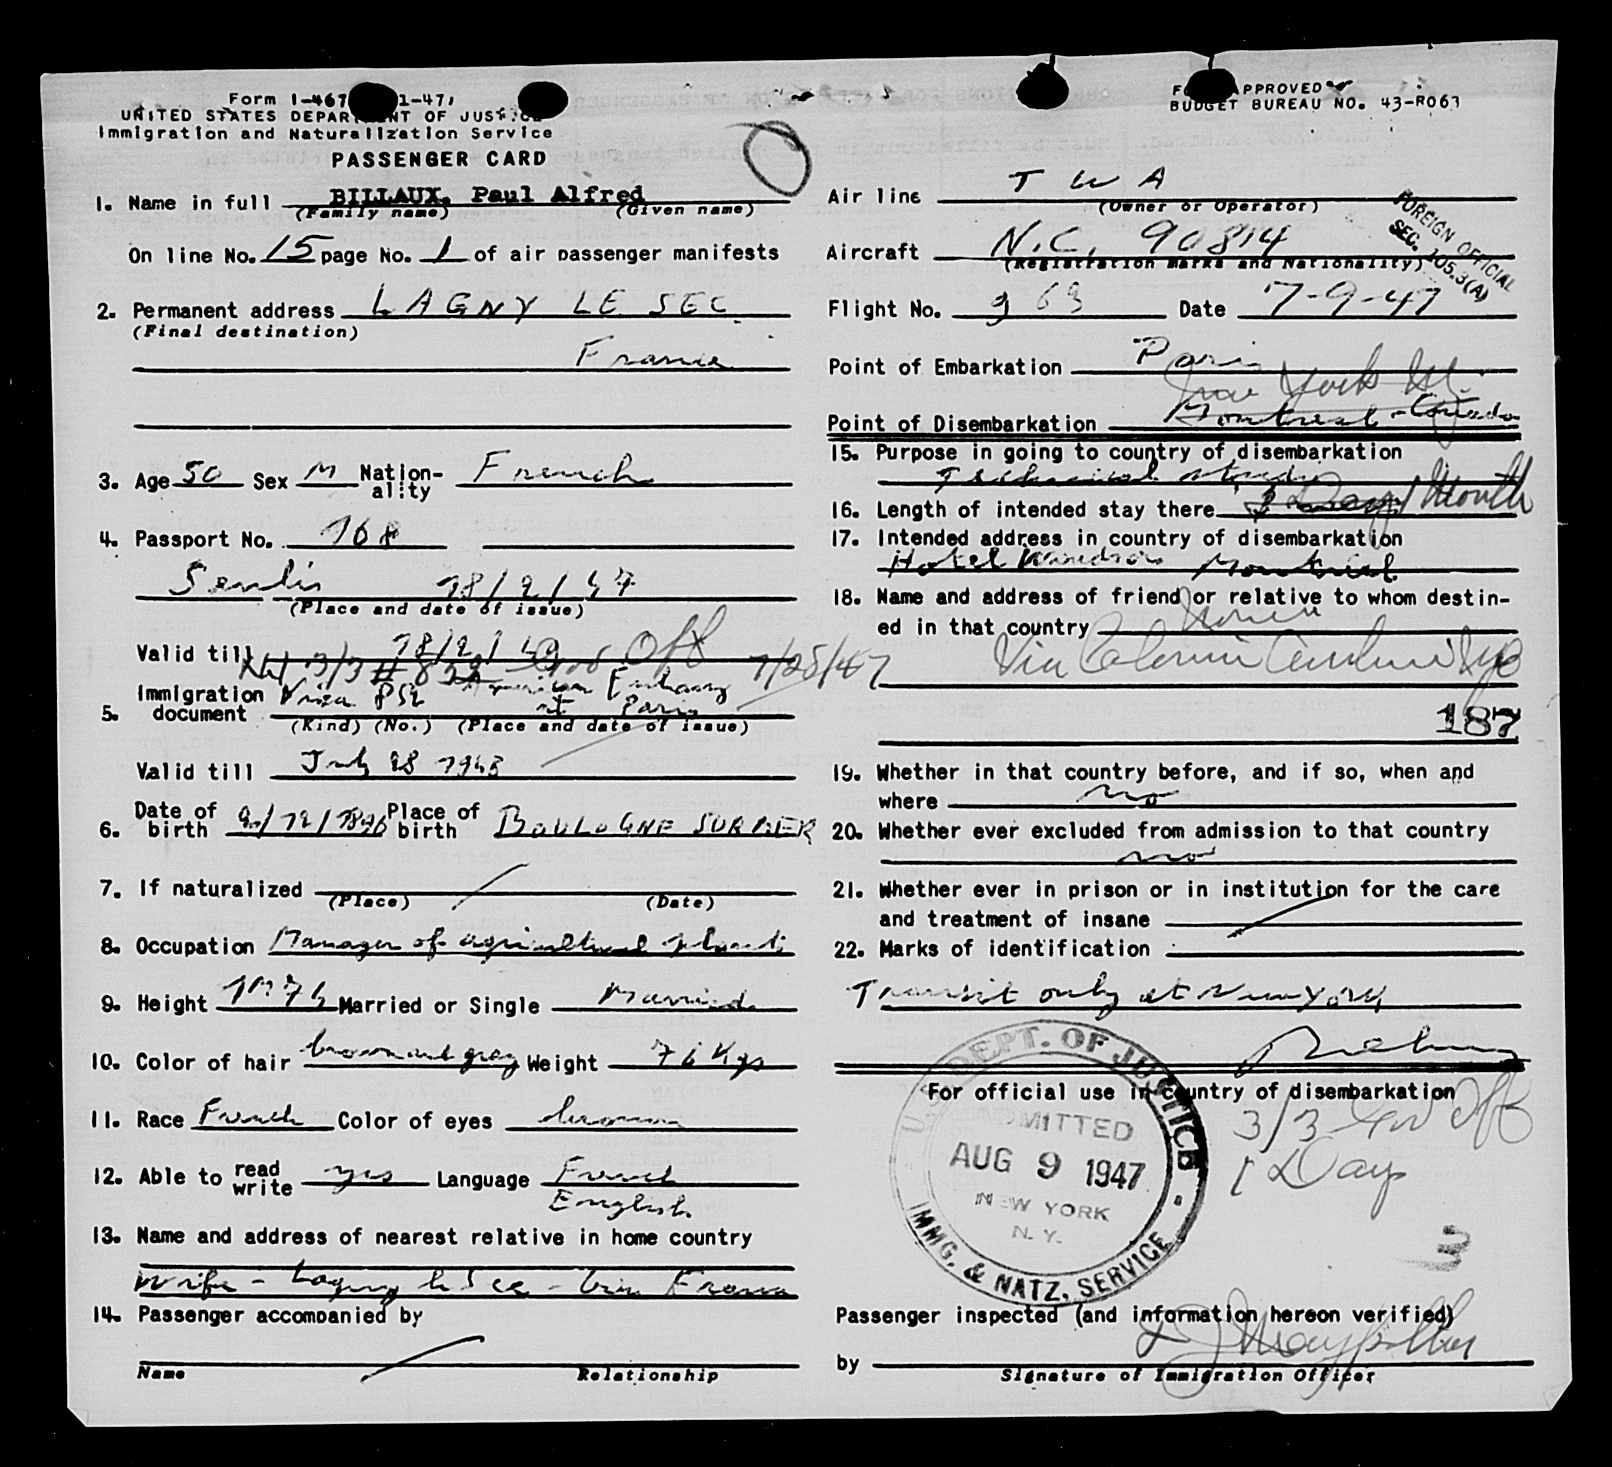 Form I-467 1-47)
UNITED STATES DEPARTMENT OF JUSTICE
Immigration and Naturalization Service
PASSENGER CARD
1. Name in full BILLAUX, Paul Alfred
(Family name) (Given name)
On line No. 15 page No. 1 of air passenger manifests
2. Permanent address LAGNY LE SEC
(Final destination)
France
3. Age 50 Sex M Nation-
ality French
4. Passport No. 768
Senlis 18/2/47
(Place and date of issue)
Valid till 18/2/
3/3 # 832 Gov Off 7/28/47
Immigration Visa American Embassy
5. document at Paris
(Kind) (No.) (Place and date of issue)
Valid till July 28 1948
6. Date of birth /12/1896 Place of birth BOULOGNE SUR MER
7. If naturalized
(Place) (Date)
8. Occupation Manager of agricultural plant
9. Height 1m 76 Married or Single Married
10. Color of hair brown and gray Weight 76 Kgs
11. Race French Color of eyes brown
12. Able to read write yes Language French
English
13. Name and address of nearest relative in home country
Wife - Lagny le Sec - France
14. Passenger accompanied by
Name Relationship
FORM APPROVED
BUDGET BUREAU NO. 43-R063
Air line T W A
(Owner or Operator)
FOREIGN OFFICIAL
SEC. 105.3(A)
Aircraft N.C. 90814
(Registration marks and Nationality)
Flight No. 963 Date 7-9-47
Point of Embarkation Paris
New York
Point of Disembarkation Montreal - Canada
15. Purpose in going to country of disembarkation
Technical study
16. Length of intended stay there 1 Month
17. Intended address in country of disembarkation
Hotel Windsor Montreal
18. Name and address of friend or relative to whom destin-
ed in that country None
Via Colonial Airlines
187
19. Whether in that country before, and if so, when and
where no
20. Whether ever excluded from admission to that country
no
21. Whether ever in prison or in institution for the care
and treatment of insane
22. Marks of identification
Transit only at New York
For official use in country of disembarkation
3/3 Gov Off
1 Day
U.S. DEPT. OF JUSTICE
ADMITTED
AUG 9 1947
NEW YORK
N. Y.
IMMG. & NATZ. SERVICE
3
Passenger inspected (and information hereon verified)
by
Signature of Immigration Officer